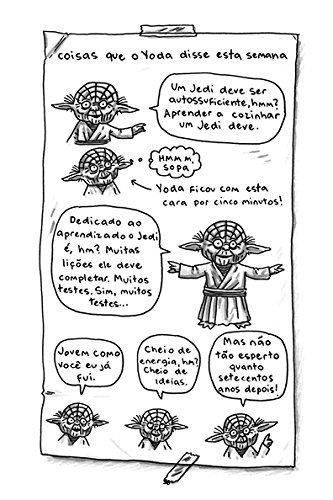 coisas que o Yoda disse esta semana
Um Jedi deve ser
autossuficiente, hmm?
Aprender a cozinhar
um Jedi deve.
HMMM,
SOPA
Yoda ficou com esta
cara por cinco minutos!
Dedicado ao
aprendizado o Jedi
é, hm? Muitas
lições ele deve
completar. Muitos
testes. Sim, muitos
testes...
Jovem como
você eu já
fui.
Cheio de
energia, hm?
Cheio de
ideias.
Mas não
tão esperto
quanto
setecentos
anos depois!